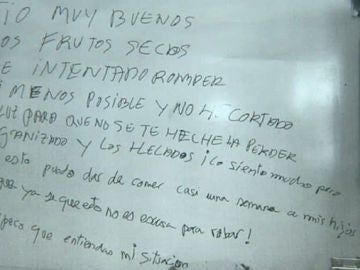 TIO MUY BUENOS
OS FRUTOS SECOS
E INTENTADO ROMPER
MENOS POSIBLE Y NO H. CORTADO
LUZ PARA QUE NO SE TE HECHE HA PERDER
GRANIZADO Y LOS HELADOS ¡Lo siento mucho pero
esto puedo dar de comer casi una semana a mis hijos
que ya se que esto no es excusa para robar!
pero que entiendas mi situacion